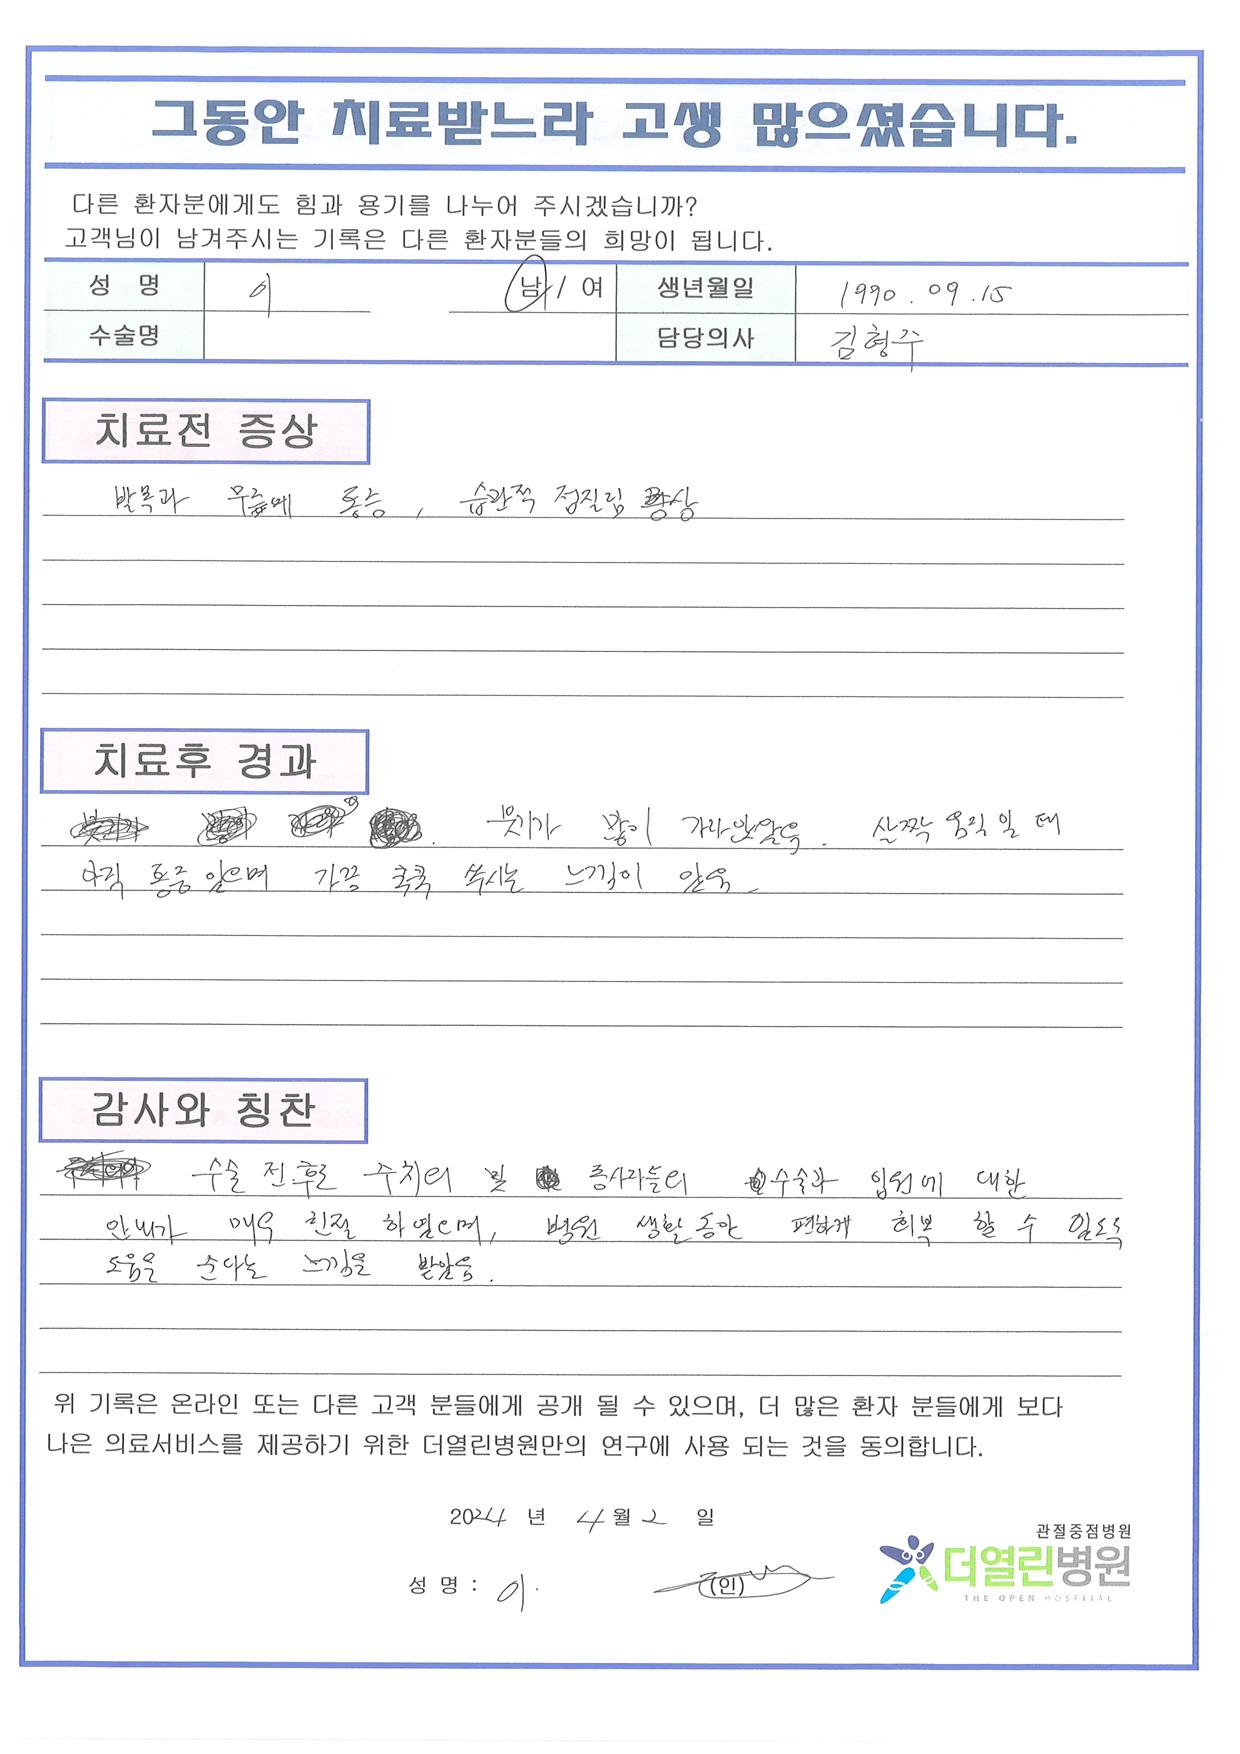 그동안 치료받느라 고생 많으셨습니다.
다른 환자분에게도 힘과 용기를 나누어 주시겠습니까?
고객님이 남겨주시는 기록은 다른 환자분들의 희망이 됩니다.
성 명 이 남 / 여 생년월일 1990. 09. 15
수술명 담당의사 김형주
치료전 증상
발목과 무릎에 통증, 습관적 접질림 증상
치료후 경과
붓기가 많이 가라앉았음. 살짝 움직일 때
아직 통증 있으며 가끔 쿡쿡 쑤시는 느낌이 있음.
감사와 칭찬
수술 전.후로 주치의 및 종사자들의 수술과 입원에 대한
안내가 매우 친절 하였으며, 병원 생활동안 편하게 회복 할 수 있도록
도움을 준다는 느낌을 받았음.
위 기록은 온라인 또는 다른 고객 분들에게 공개 될 수 있으며, 더 많은 환자 분들에게 보다
나은 의료서비스를 제공하기 위한 더열린병원만의 연구에 사용 되는 것을 동의합니다.
2024 년 4월 2 일
성 명 : 이. (인)
관절중점병원
더열린병원
THE OPEN HOSPITAL